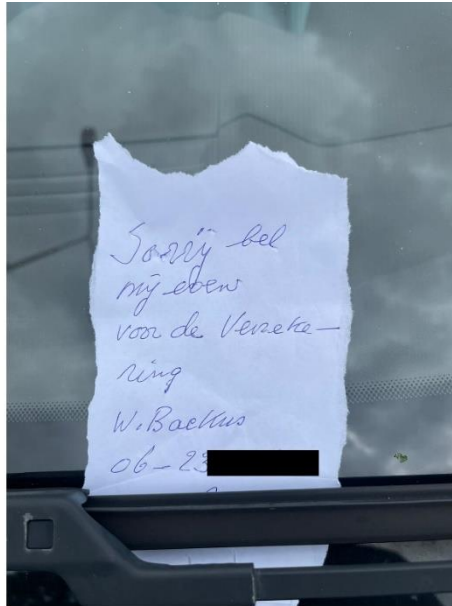 Sorrÿ bel
mÿ even
voor de Verzeke-
ring
W. Backus
06-23